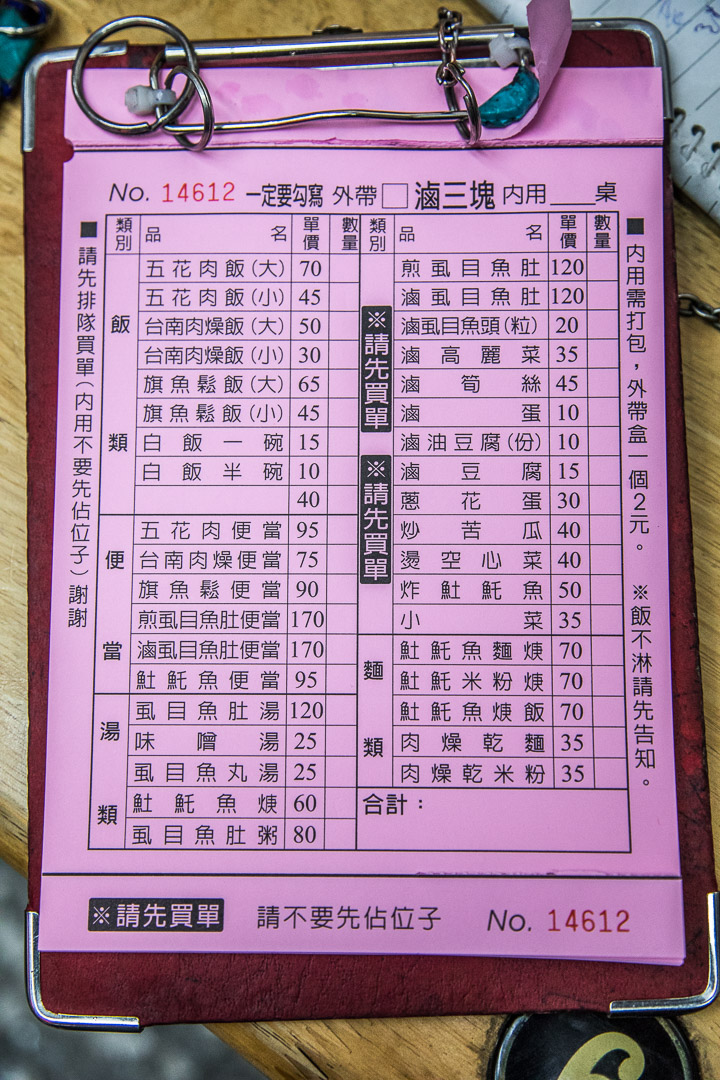 No. 14612 一定要勾寫 外帶□ 滷三塊 內用____桌
■請先排隊買單(內用不要先佔位子)謝謝
類別 品名 單價 數量
飯類
五花肉飯(大) 70
五花肉飯(小) 45
台南肉燥飯(大) 50
台南肉燥飯(小) 30
旗魚鬆飯(大) 65
旗魚鬆飯(小) 45
白飯一碗 15
白飯半碗 10
40
便當
五花肉便當 95
台南肉燥便當 75
旗魚鬆便當 90
煎虱目魚肚便當 170
滷虱目魚肚便當 170
魠魚便當 95
湯類
虱目魚肚湯 120
味噌湯 25
虱目魚丸湯 25
魠魚焿 60
虱目魚肚粥 80
類別 品名 單價 數量
※請先買單
※請先買單
煎虱目魚肚 120
滷虱目魚肚 120
滷虱目魚頭(粒) 20
滷高麗菜 35
滷筍絲 45
滷蛋 10
滷油豆腐(份) 10
滷豆腐 15
蔥花蛋 30
炒苦瓜 40
燙空心菜 40
炸魠魚 50
小菜 35
麵類
魠魚麵焿 70
魠米粉焿 70
魠魚焿飯 70
肉燥乾麵 35
肉燥乾米粉 35
合計：
■內用需打包，外帶盒一個2元。 ※飯不淋請先告知。
※請先買單 請不要先佔位子 No. 14612